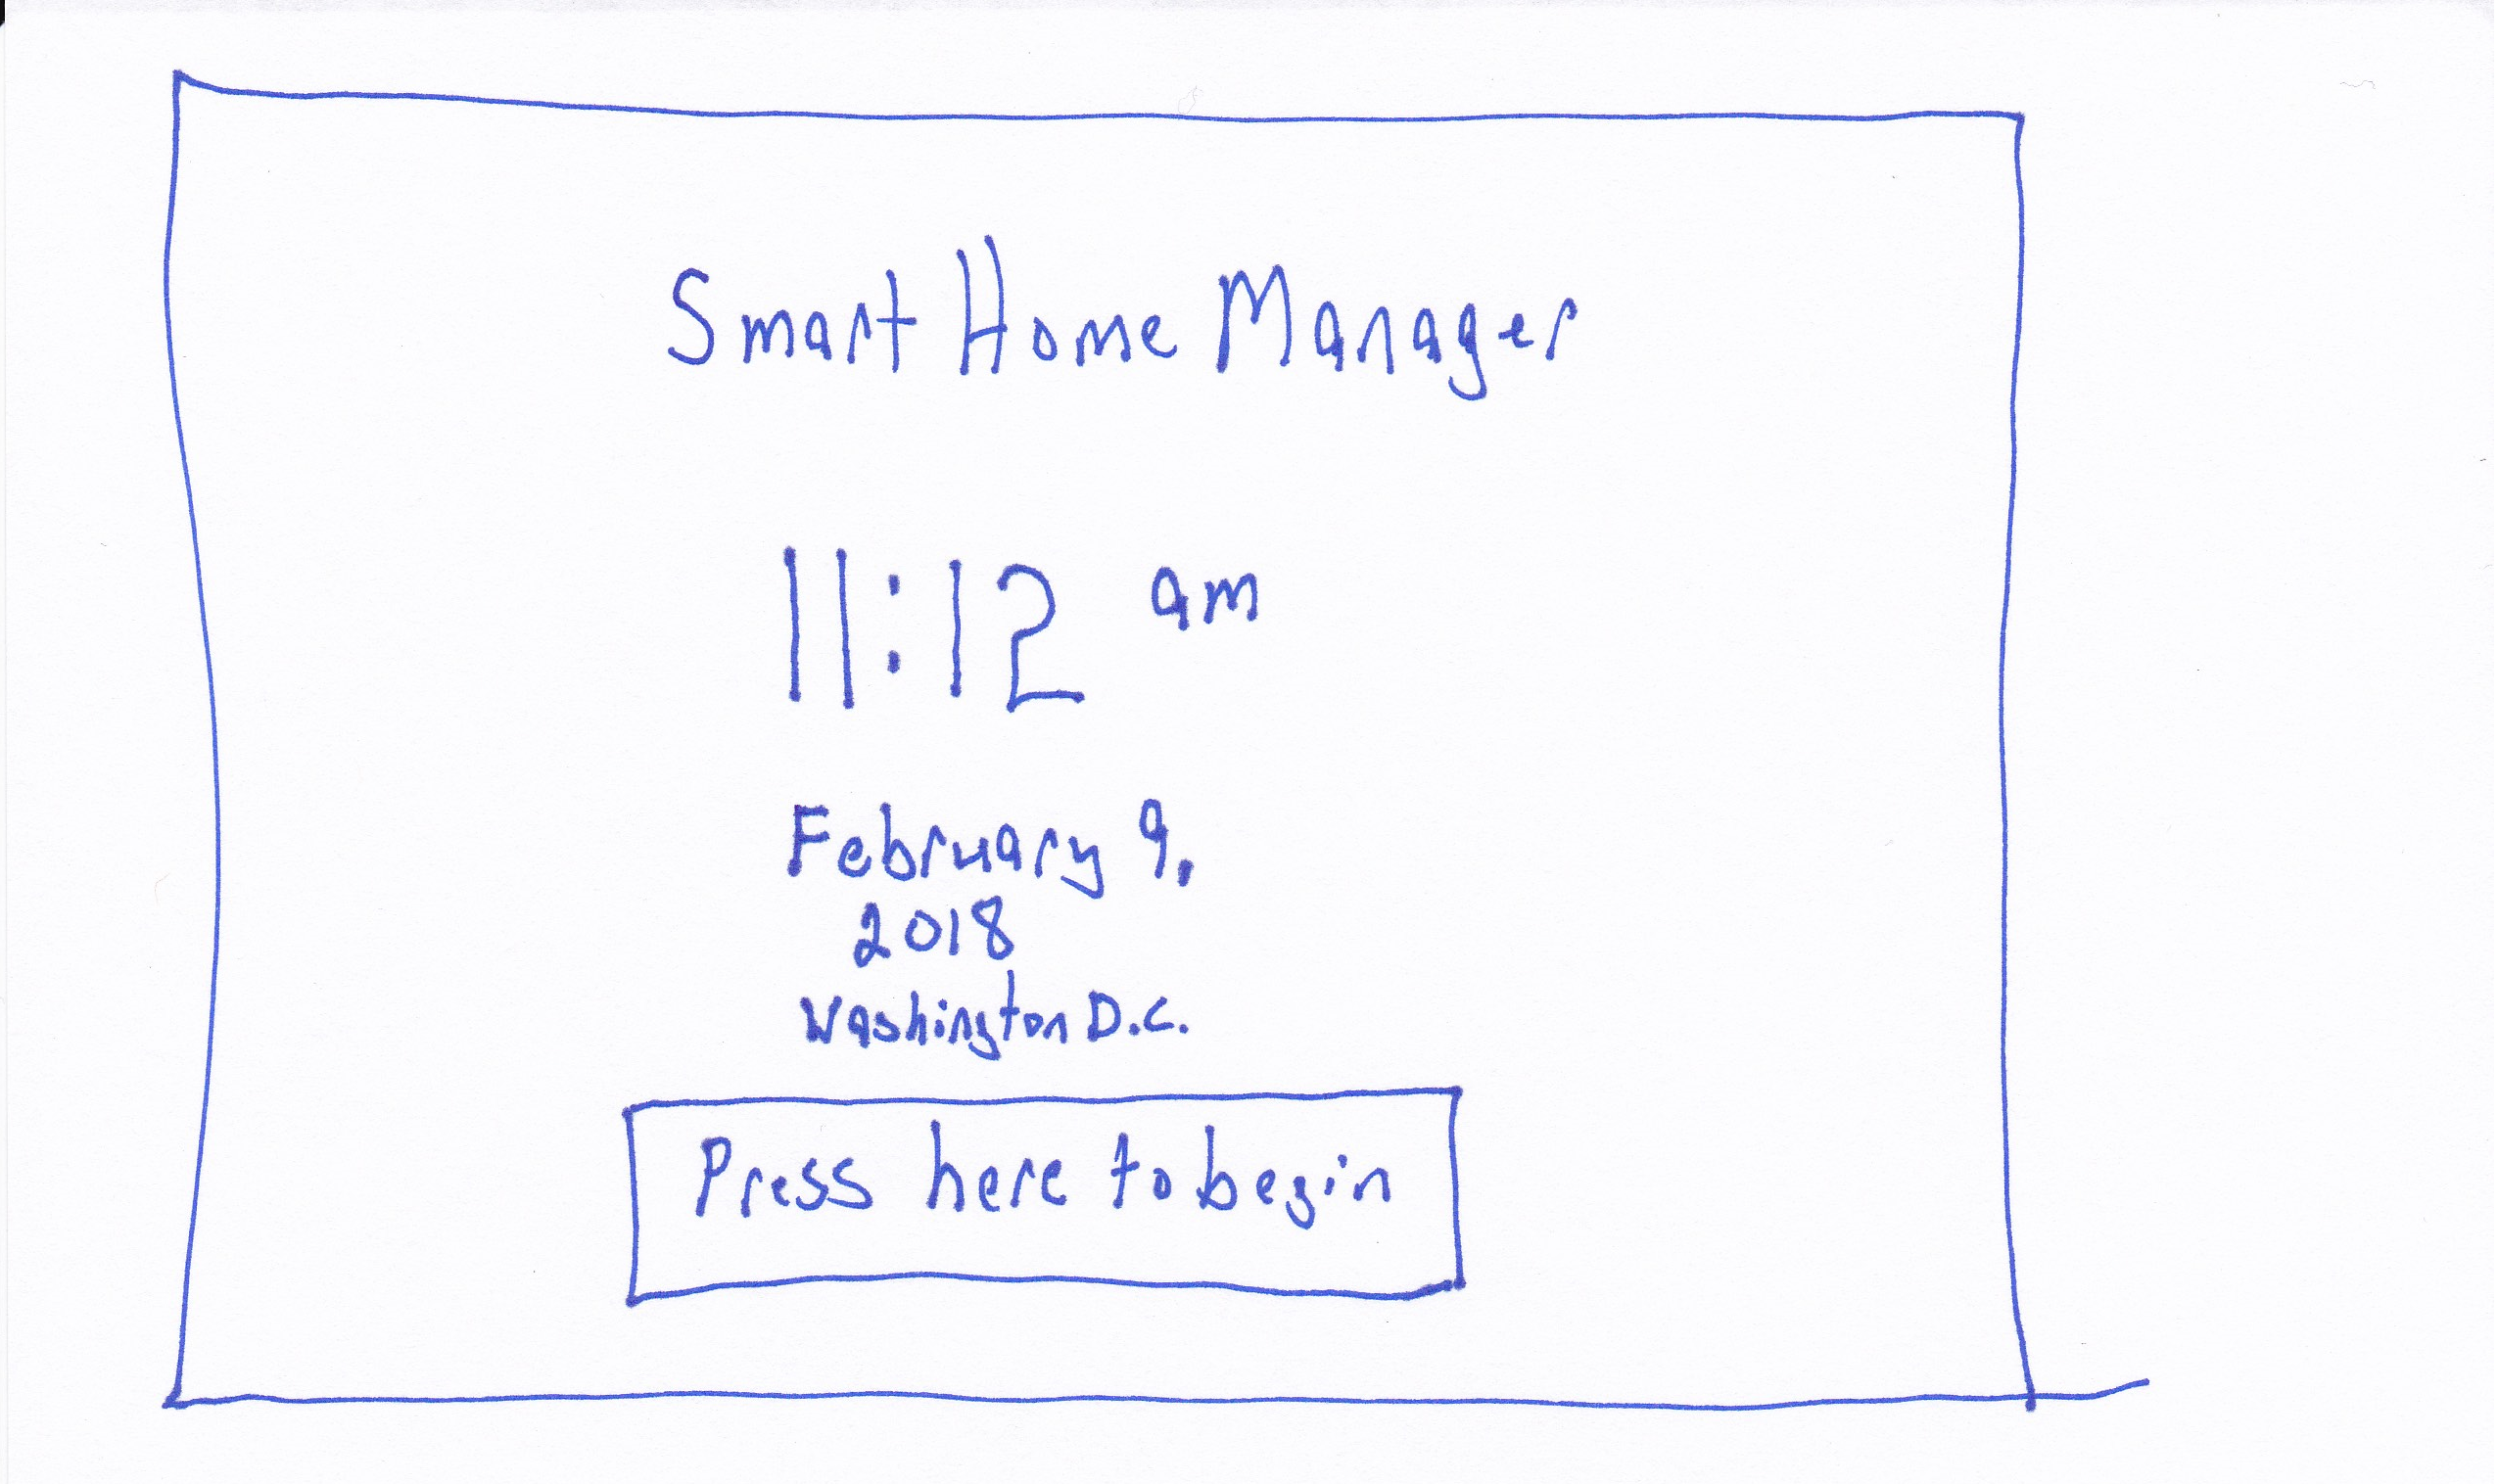 Smart Home Manager
11:12 am
February 9,
2018
Washington D.C.
Press here to begin